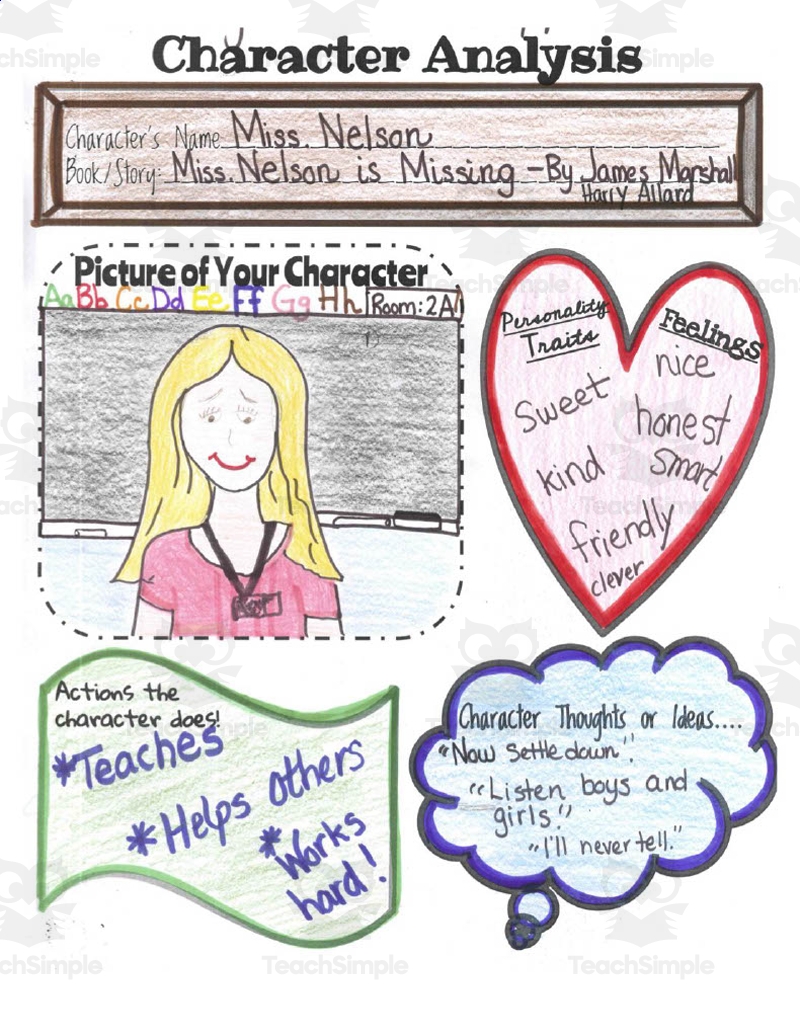 Character Analysis
Character's Name Miss. Nelson
Book/Story: Miss. Nelson is Missing - By James Marshall
Harry Allard
Picture of Your Character
Aa Bb Cc Dd Ee Ff Gg Hh Room: 2A
Personality
Traits
Sweet
kind
friendly
clever
Feelings
nice
honest
Smart
Actions the
character does!
*Teaches
*Helps others
*Works
hard!
Character Thoughts or Ideas....
"Now settle down".
"Listen boys and
girls."
"I'll never tell."
TeachSimple